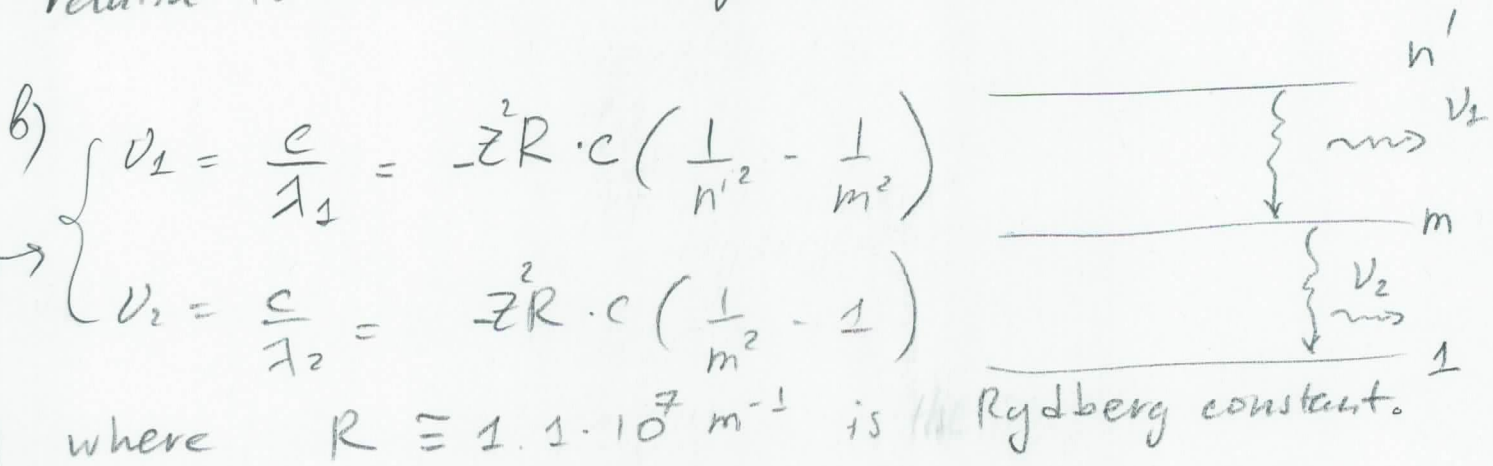 b) { ν₁ = c/λ₁ = -Z²R·c(1/n'² - 1/m²)
→ ν₂ = c/λ₂ = -Z²R·c(1/m² - 1)
n'
ν₁
m
ν₂
1
where R ≡ 1.1·10⁷ m⁻¹ is the Rydberg constant.